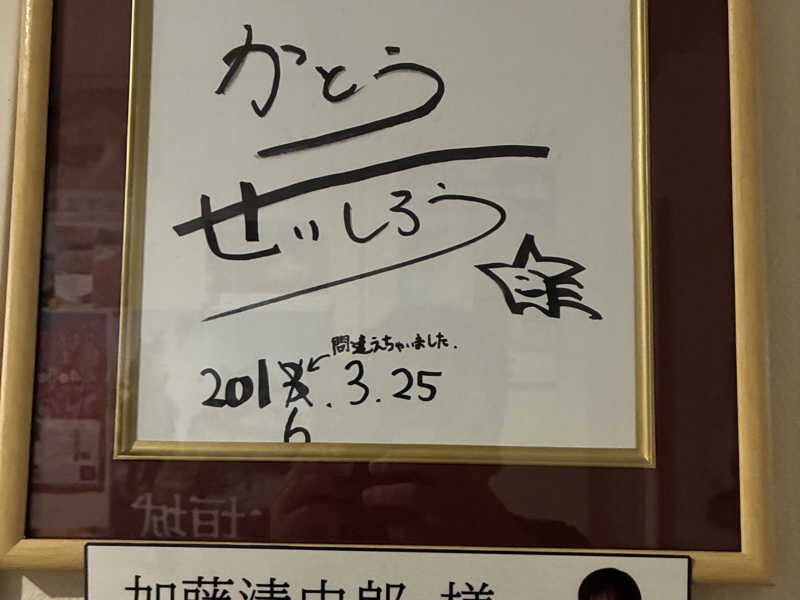 かとう
せいしろう
問違えちゃいました.
2018.3.25
6
加藤清史郎 様